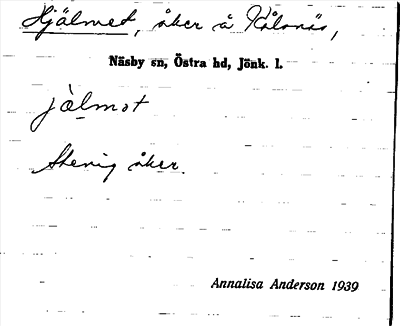 Hjälmet, åker å Kålsnäs,
Näsby sn, Östra hd, Jönk. l.
jàlmot
Stenig åker.
Annalisa Anderson 1939